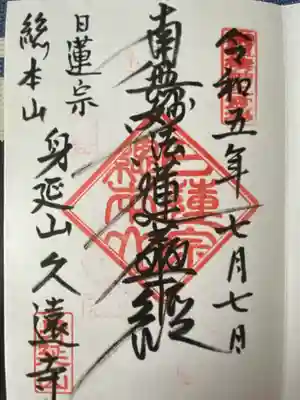 令和五年七月七日
南無妙法蓮華経
日蓮宗
総本山
身延山久遠寺